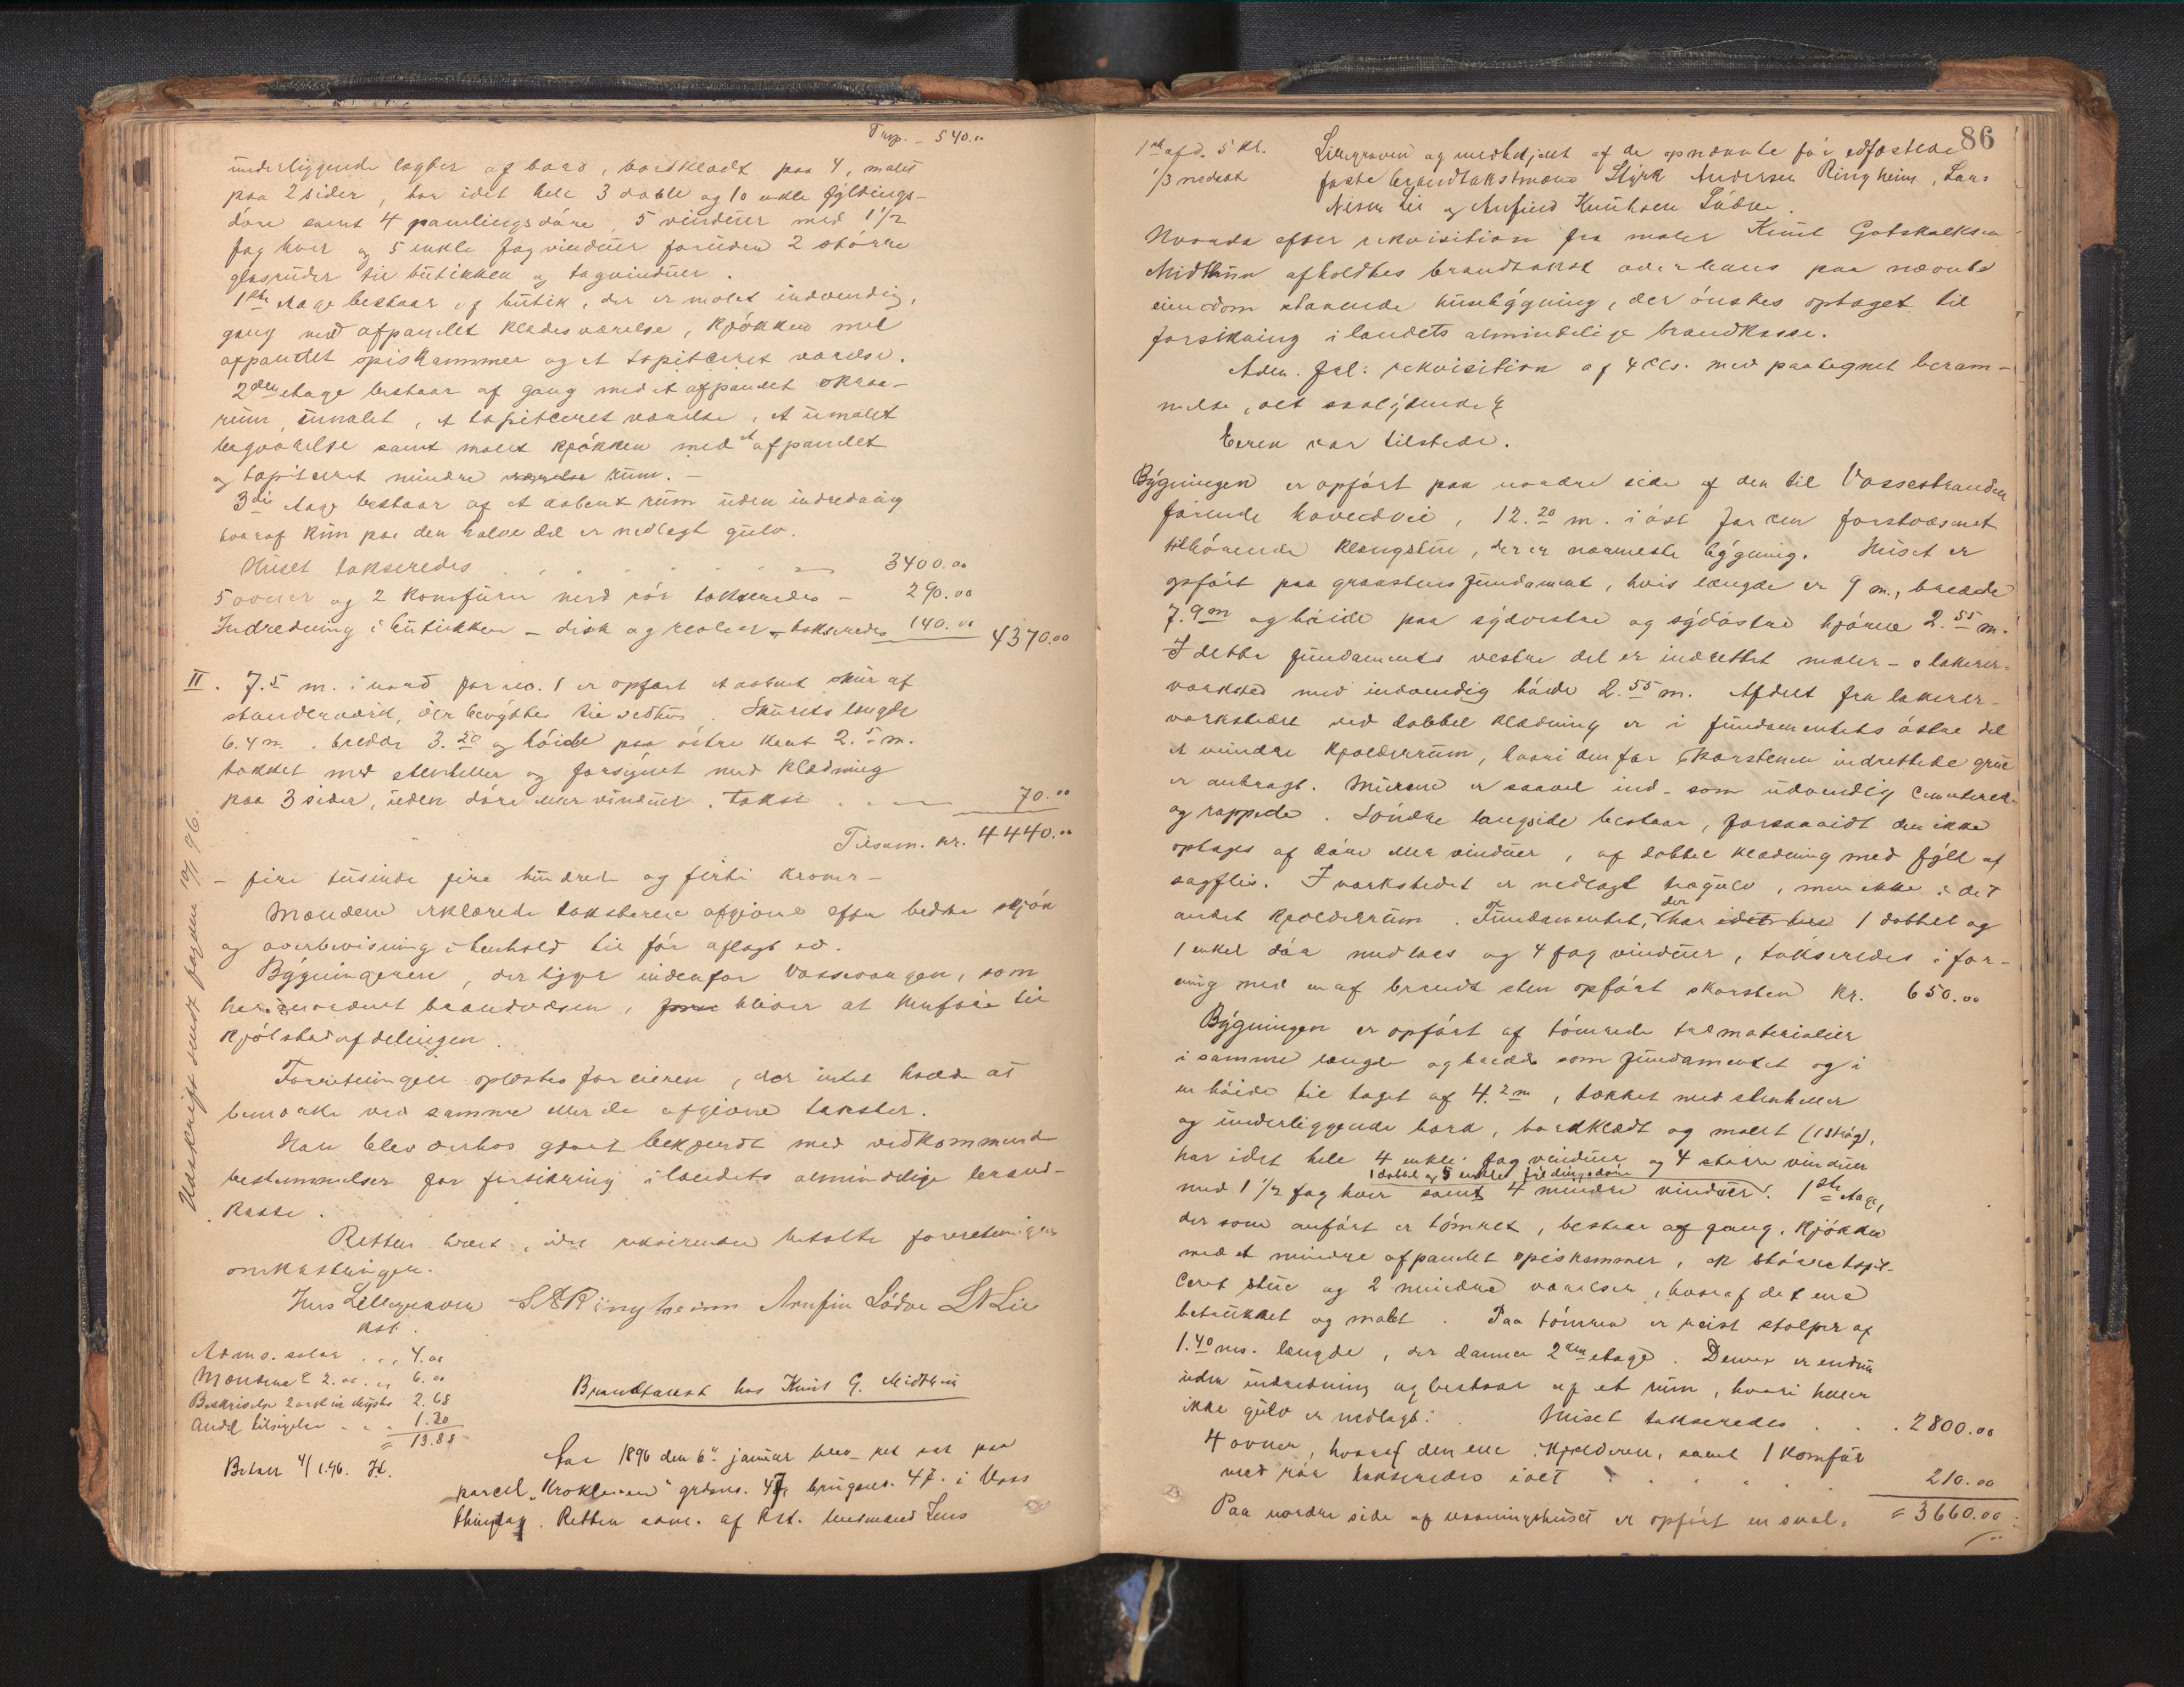 Trsp. – 540.00
underliggende lagter af bord, bordklædt paa 4, malet
paa 2 sider, har idet hele 3 doble og 10 enkle fyldings-
döre samt 4 panelingsdöre, 5 vinduer med 1 1/2
fag hver og 5 enkle fag vinduer foruden 2 större
glasruder til butikken og tagvinduer.
1ste etage bestaar af butik, der er malet indvendig,
gang med afpanelet klædesværelse, kjökken med
afpanelet spiskammer og et tapitceret værelse.
2den etage bestaar af gang med et afpanelet
rum, umalet, et tapitceret værelse, et umalet
værelse samt malet kjökken med et afpanelet
og tapitceret mindre værelse rum. –
3die etage bestaar af et aabent rum uden indredning
hvoraf kun paa den halve del er nedlagt gulv.
Huset takseredes . . . . . . 3400.00
5 ovner og 2 komfurer med rör takseredes – 290.00
Indredning i butikken – disk og reoler – takseredes 140.00 4370.00
II. 7.5 m. i nord for no. 1 er opfört et aabent skur af
standerværk, der benyttes til vedhus. Skurets længde
6.4 m. bredde 3.20 og höide paa östre kant 2.5 m.
tækket med stenheller og forsynet med klædning
paa 3 sider, uden döre eller vinduer. Takst . . . 70.00
Tilsam. kr. 4440.00
– fire tusinde fire hundred og firti kroner –
Mændene erklærede taksterne afgivne efter bedste skjön
og overbevisning i henhold til för aflagt ed.
Bygningerne, der ligger indenfor Vossevangen, som
har ordnet brandvæsen, bliver at henföre til
Kjöbstadafdelingen.
Forretningen oplæstes for eieren, der intet havde at
bemærke ved samme eller de afgivne takster.
Han blev derhos gjort bekjendt med vedkommende
bestemmelser for forsikring i landets almindelige brand-
kasse.
Retten hævet, idet rekvirenten betalte forretningens
omkostninger.
Jens Lillegraven SARingheim Arnfin Lödve LNLie
kst.
Adms. salær . . . 4.00
Mændene á 2.00 . . 6.00
Beskrivelse 2 ark 2.68
Andel tilsigelse . . 1.20
= 13.88
Betalt 4/1.96. JL.
Udskrift sendt fogden 19/1 96.
Brandtakst hos Knut G. Midthun
Aar 1896 den 6te januar blev ret sat paa
parcel „Kroklien“ grdsno. 47, brugsno. 47 i Voss
thinglag. Retten adm. af kst. lensmand Jens
86
1ste afd. 5 kl.
1/3 nedsat
Lillegraven og medbetjent af de opnævnte før edfæstede
faste brandtakstmænd Styrk Andersen Ringheim, Lars
Nilsen Lie og Arnfind Knutsen Lödve.
Hvorda efter rekvisition fra maler Knut Gotskalksen
Midthun afholdtes brandtakst over hans paa nævnte
eiendom staaende husbygning, der önskes optaget til
forsikring i landets almindelige brandkasse.
Adm. frl: rekvisition af 4 ds. med paategnet beram-
melse, alt saalydende &
Eieren var tilstede.
Bygningen er opfört paa nordre side af den til Vossestranden
förende hovedvei, 12.20 m. i öst for den forstvæsenet
tilhörende klængstue, der er nærmeste bygning. Huset er
opfört paa graastensfundament, hvis længde er 9 m., bredde
7.9 m og höide paa sydvestre og sydöstre hjörne 2.55 m.
I dette fundaments vestre del er indrettet maler- & lakerer-
værksted med indvendig höide 2.55 m. Afdelt fra lakerer-
værkstedet ved dobbel klædning er i fundamentets östre del
et mindre kjælderrum, hvori den for skorstenen indrettede grue
er anbragt. Murene er saavel ind- som udvendig cementerede
og rappede. Söndre langside bestaar, forsaavidt den ikke
optages af döre eller vinduer, af dobbel klædning med fyll af
sagflis. I værkstedet er nedlagt trægulv, men ikke i det
andet kjælderrum. Fundamentet, der har idet hele 1 dobbel og
1 enkel dör med laas og 4 fag vinduer, takseredes i for-
ening med en af brændt sten opfört skorsten kr. 650.00
Bygningen er opfört af tömrede træmaterialier
i samme længde og bredde som fundamentet og i
en höide til taget af 4.2 m, tækket med stenheller
og underliggende bord, bordklædt og malet (1 strög),
har idet hele 4 enkle fag vinduer og 4 större vinduer
1 dobbel og 5 enkle fyldingsdöre
med 1 1/2 fag hver samt 4 mindre vinduer. 1ste etage,
der som anfört er tömret, bestaar af gang, kjökken
med et mindre afpanelet spiskammer, en större tapit-
ceret stue og 2 mindre værelser, hvoraf det ene
betrukket og malet. Paa tömren er reist stolper af
1.40 ms. længde, der danner 2den etage. Denne er endnu
uden indredning og bestaar af et rum, hvori heller
ikke gulv er nedlagt. Huset takseredes . . . 2800.00
4 ovner, hvoraf den ene i kjælderen, samt 1 komfür
med rör takseredes idet . . . . 210.00
= 3660.00
Paa nordre side af vaaningshuset er opfört en sval-